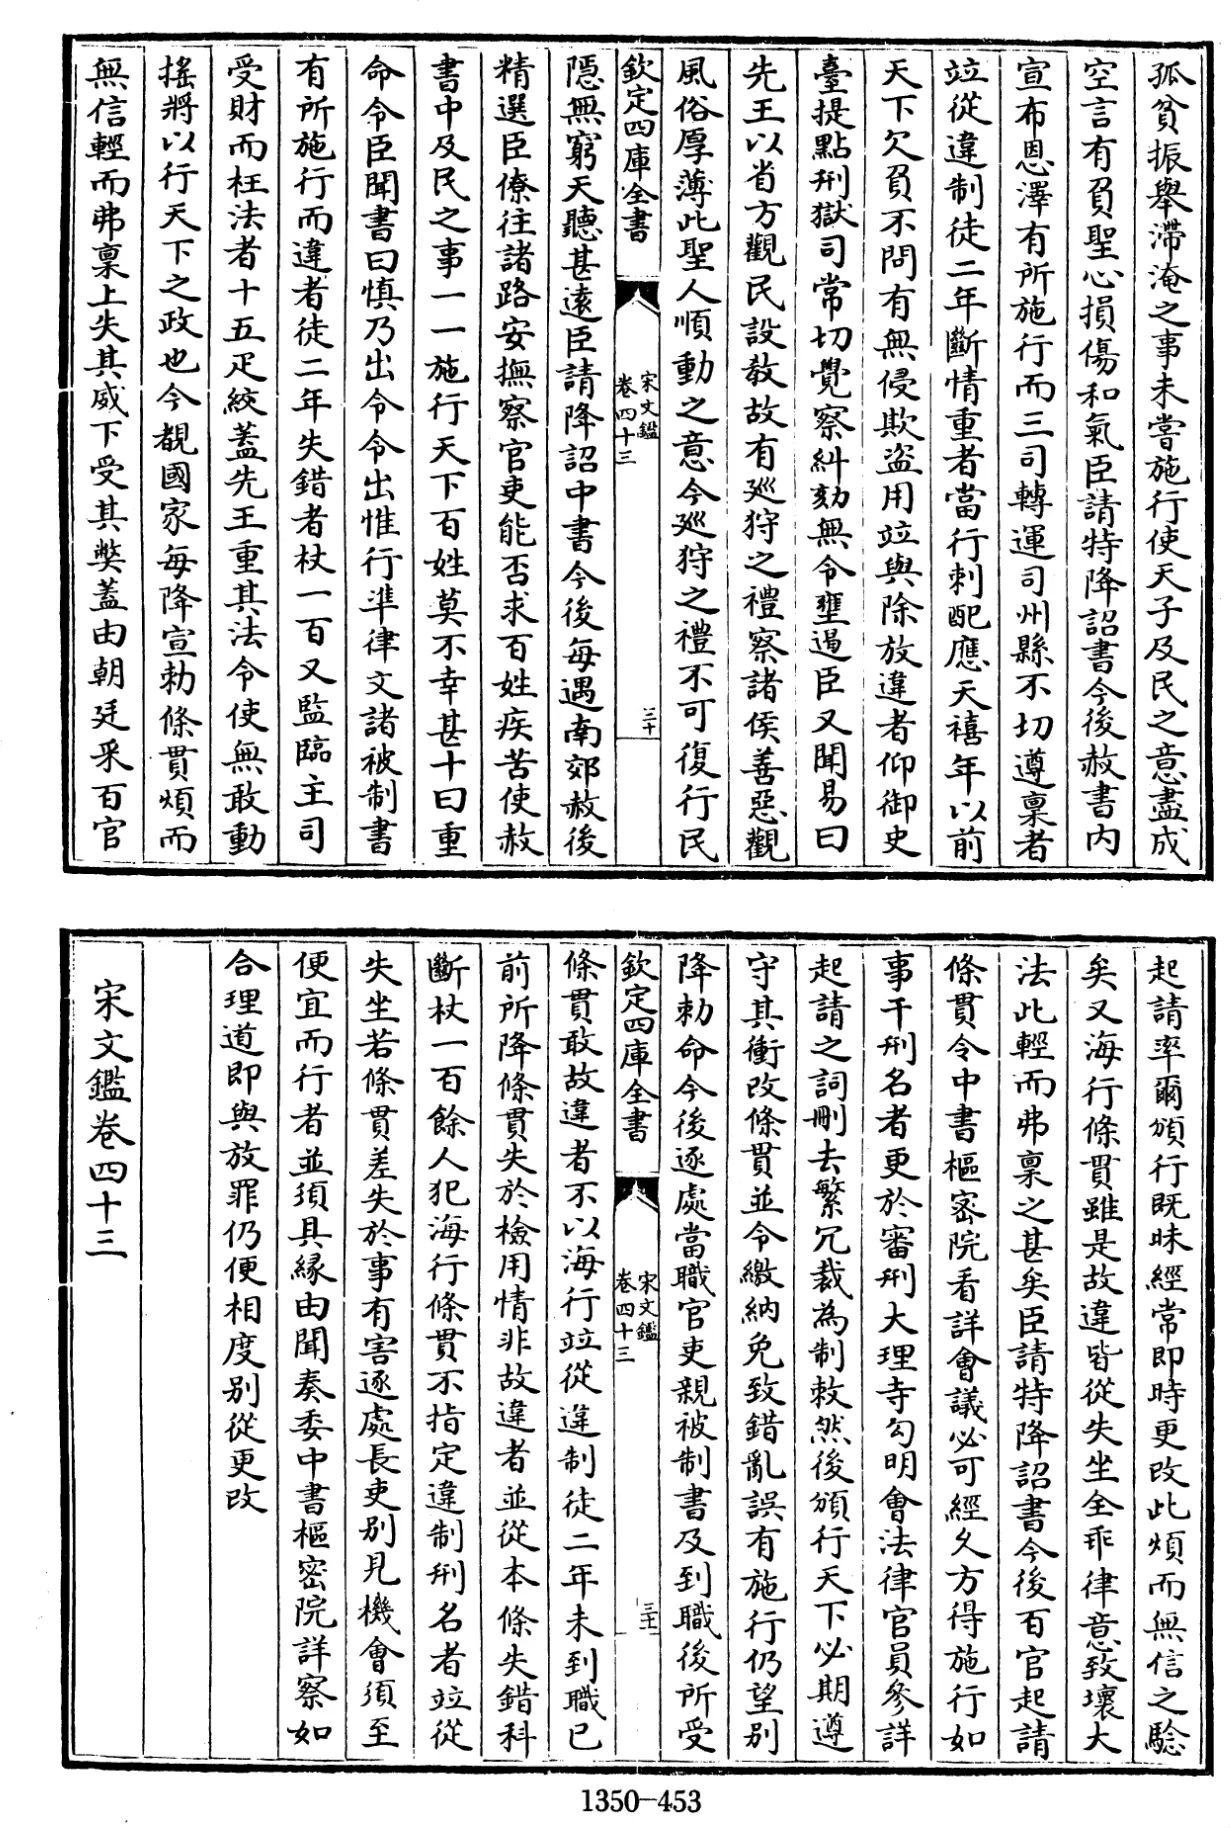 孤貧振舉滯淹之事未嘗施行使天子及民之意盡成
空言有負聖心損傷和氣臣請特降詔書今後赦書内
宣布恩澤有所施行而三司轉運司州縣不切遵稟者
竝從違制徒二年斷情重者當行刺配應天禧年以前
天下欠負不問有無侵欺盗用竝與除放違者仰御史
臺提點刑獄司常切覺察糾劾無令壅遏臣又聞易曰
先王以省方觀民設教故有廵狩之禮察諸侯善惡觀
風俗厚薄此聖人順動之意今廵狩之禮不可復行民
欽定四庫全書
宋文鑑
卷四十三
三十
隱無窮天聽甚逺臣請降詔中書今後每遇南郊赦後
精選臣僚往諸路安撫察官吏能否求百姓疾苦使赦
書中及民之事一一施行天下百姓莫不幸甚十曰重
命令臣聞書曰慎乃出令令出惟行凖律文諸被制書
有所施行而違者徒二年失錯者杖一百又監臨主司
受財而枉法者十五疋絞蓋先王重其法令使無敢動
搖將以行天下之政也今覩國家每降宣勅條貫煩而
無信輕而弗稟上失其威下受其獘蓋由朝廷采百官
起請率爾頒行既昧經常即時更改此煩而無信之驗
矣又海行條貫雖是故違皆從失坐全乖律意致壞大
法此輕而弗稟之甚矣臣請特降詔書今後百官起請
條貫令中書樞密院看詳會議必可經久方得施行如
事干刑名者更於審刑大理寺勾明會法律官員參詳
起請之詞刪去繁冗裁為制敕然後頒行天下必期遵
守其衝改條貫並令繳納免致錯亂誤有施行仍望别
降勅命今後逐處當職官吏親被制書及到職後所受
欽定四庫全書
宋文鑑
卷四十三
三十一
條貫敢故違者不以海行竝從違制徒二年未到職已
前所降條貫失於檢用情非故違者並從本條失錯科
斷杖一百餘人犯海行條貫不指定違制刑名者竝從
失坐若條貫差失於事有害逐處長吏别見機會須至
便宜而行者並須具縁由聞奏委中書樞密院詳察如
合理道即與放罪仍便相度别從更改
宋文鑑卷四十三
1350-453